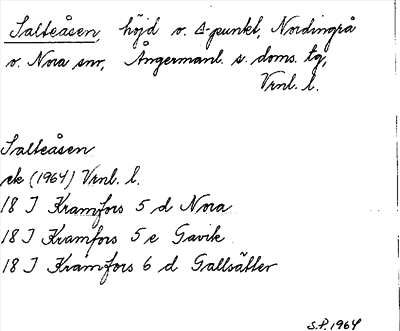 Salteåsen, höjd o. Δ-punkt, Nordingrå
o. Nora snr, Ångermanl. s. doms. tg,
Vrnl. l.
Salteåsen
ek (1964) Vrnl. l.
18 J Kramfors 5 d Nora
18 J Kramfors 5 e Gavik
18 J Kramfors 6 d Gallsätter
S.P. 1964